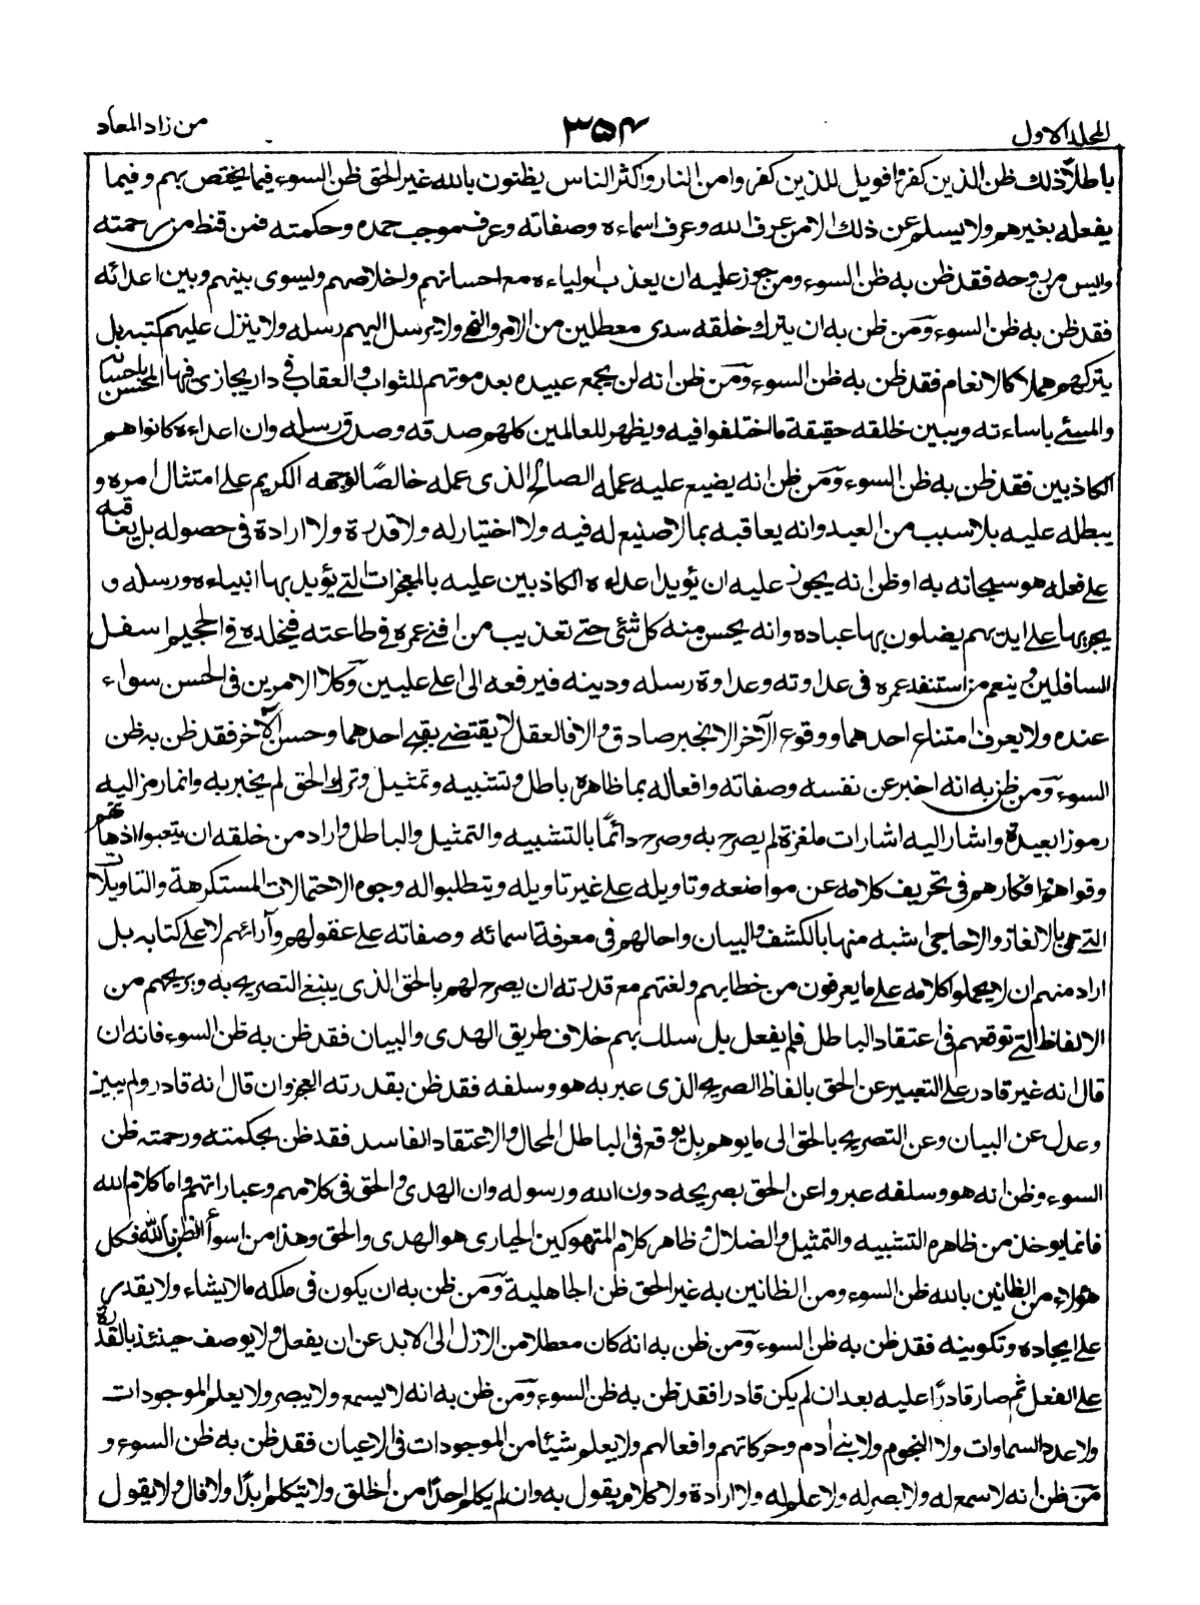 المجلد الاول
٣٥٤
من زاد المعاد
باطلاً ذلك ظن الذين كفروا فويل للذين كفروا من النار واكثر الناس يظنون بالله غير الحق ظن السوء فيما يختص بهم وفيما
يفعله بغيرهم ولا يسلم عن ذلك الا من عرف الله وعرف اسماءه وصفاته وعرف موجب حمده وحكمته فمن قنط من رحمته
وايس من روحه فقد ظن به ظن السوء ومن جوز عليه ان يعذب اولياءه مع احسانهم واخلاصهم ويسوى بينهم وبين اعدائه
فقد ظن به ظن السوء ومن ظن به ان يترك خلقه سدى معطلين من الامر والنهى ولا يرسل اليهم رسله ولا ينزل عليهم كتبه بل
يتركهم هملا كالانعام فقد ظن به ظن السوء ومن ظن انه لن يجمع عبيده بعد موتهم للثواب والعقاب فى دار يجازى فيها المحسن باحسانه
والمسئ باساءته ويبين خلقه حقيقة ما اختلفوا فيه ويظهر للعالمين كلهم صدقه وصدق رسله وان اعداءه كانوا هم
الكاذبين فقد ظن به ظن السوء ومن ظن انه يضيع عليه عمله الصالح الذى عمله خالصًا لوجهه الكريم على امتثال امره و
يبطله عليه بلا سبب من العبد وانه يعاقبه بما لا صنيع له فيه ولا اختيار له ولا قدرة ولا ارادة فى حصوله بل يعاقبه
على فعله هو سبحانه به او ظن انه يجوز عليه ان يؤيد اعداءه الكاذبين عليه بالمعجزات التى يؤيد بها انبياءه ورسله و
يجريها على ايديهم يضلون بها عباده وانه يحسن منه كل شئ حتى تعذيب من افنى عمره فى طاعته فيخلده فى الجحيم اسفل
السافلين وينعم من استنفد عمره فى عداوته وعداوة رسله ودينه فيرفعه الى اعلى عليين وكلا الامرين فى الحسن سواء
عنده ولا يعرف امتناع احدهما ووقوع الآخر الا بخبر صادق والا فالعقل لا يقتضى بقبح احدهما وحسن الآخر فقد ظن به ظن
السوء ومن ظن به انه اخبر عن نفسه وصفاته وافعاله بما ظاهره باطل وتشبيه وتمثيل وترك الحق لم يخبر به وانما رمز اليه
رموزا بعيدة واشار اليه اشارات ملغزة لم يصرح به وصرح دائمًا بالتشبيه والتمثيل والباطل واراد من خلقه ان يتعبوا اذهانهم
وقواهم وافكارهم فى تحريف كلامه عن مواضعه وتاويله على غير تاويله ويتطلبوا له وجوه الاحتمالات المستكرهة والتاويلات
التى هى بالالغاز والاحاجى اشبه منها بالكشف والبيان واحالهم فى معرفة اسمائه وصفاته على عقولهم وآرائهم لا على كتابه بل
اراد منهم ان لا يحملوا كلامه على ما يعرفون من خطابهم ولغتهم مع قدرته ان يصرح لهم بالحق الذى ينبغى التصريح به ويريحهم من
الالفاظ التى توقعهم فى اعتقاد الباطل فلم يفعل بل سلك بهم خلاف طريق الهدى والبيان فقد ظن به ظن السوء فانه ان
قال انه غير قادر على التعبير عن الحق بالفاظ الصريح الذى عبر به هو وسلفه فقد ظن بقدرته العجز وان قال انه قادر ولم يبين
وعدل عن البيان وعن التصريح بالحق الى ما يوهم بل يوقع فى الباطل المحال والاعتقاد الفاسد فقد ظن بحكمته ورحمته ظن
السوء وظن انه هو وسلفه عبروا عن الحق بصريحه دون الله ورسوله وان الهدى والحق فى كلامهم وعباراتهم واما كلام الله
فانما يوخذ من ظاهره التشبيه والتمثيل والضلال وظاهر كلام المتهوكين الحيارى هو الهدى والحق وهذا من اسوأ الظن بالله فكل
هؤلاء من الظانين بالله ظن السوء ومن الظانين به غير الحق ظن الجاهلية ومن ظن به ان يكون فى ملكه ما لا يشاء ولا يقدر
على ايجاده وتكوينه فقد ظن به ظن السوء ومن ظن به انه كان معطلا من الازل الى الابد عن ان يفعل ولا يوصف حينئذ بالقدرة
على الفعل ثم صار قادرًا عليه بعد ان لم يكن قادرا فقد ظن به ظن السوء ومن ظن به انه لا يسمع ولا يبصر ولا يعلم الموجودات
ولا عدد السماوات ولا النجوم ولا بنى أدم وحركاتهم وافعالهم ولا يعلم شيئا من الموجودات فى الاعيان فقد ظن به ظن السوء و
من ظن انه لا سمع له ولا بصر له ولا علم له ولا ارادة ولا كلام يقول به وان لم يكلم احدًا من الخلق ولا يتكلم ابدًا ولا قال ولا يقول